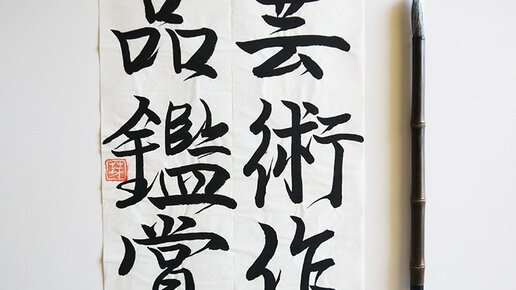 芸術作
品鑑賞